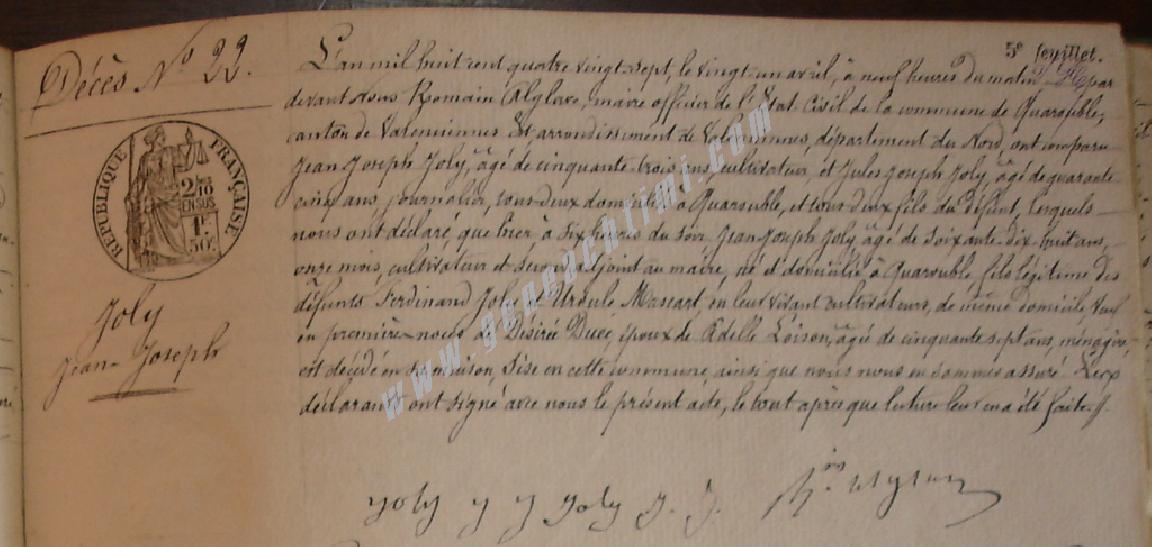 5e feuillet.
Décès No 22.
RÉPUBLIQUE FRANÇAISE
2/10
EN SUS
1F.
50c.
Joly
Jean-Joseph
L'an mil huit cent quatre vingt-sept, le vingt-un avril, à neuf heures du matin par
devant nous Romain Alglave, maire officier de l'État Civil de la commune de Quarouble,
canton de Valenciennes Est arrondissement de Valenciennes, département du Nord, ont comparu
Jean Joseph Joly, âgé de cinquante-trois ans, cultivateur et Jules Joseph Joly, âgé de quarante
cinq ans, journalier, tous deux domiciliés à Quarouble, et tous deux fils du défunt, lesquels
nous ont déclaré que hier, à six heures du soir, Jean Joseph Joly âgé de soixante-dix-huit ans,
onze mois, cultivateur et second adjoint au maire, né et domicilié à Quarouble, fils légitime des
défunts Ferdinand Joly et Ursule Massart, en leur vivant cultivateurs, de même domicile, veuf
en premières noces de Désirée Duée, époux de Adelle Loison, âgée de cinquante sept ans, ménagère,
est décédé en sa maison, sise en cette commune, ainsi que nous nous en sommes assuré. Les
déclarants ont signé avec nous le présent acte, le tout après que lecture leur en a été faite.
Joly J J Joly J. J.
www.geneachtimi.com